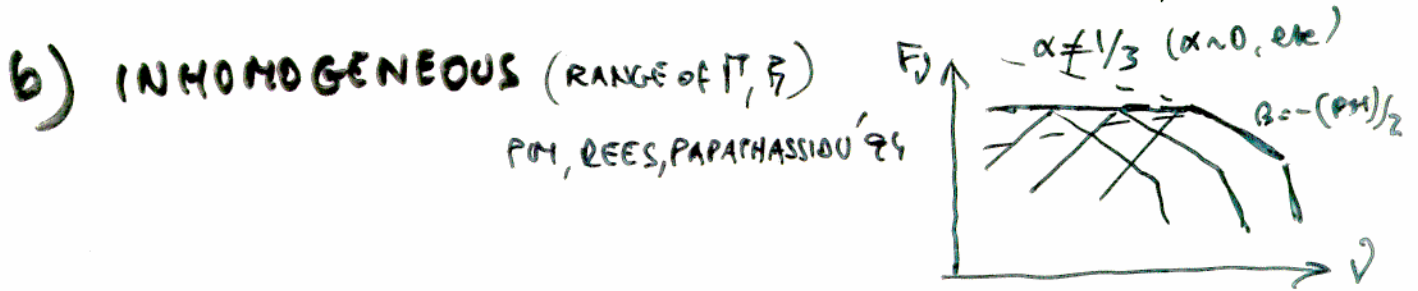 b) INHOMOGENEOUS (RANGE OF Γ, B)
PM, REES, PAPATHASSIOU '94
Fν
α≠1/3 (α~0, etc)
ν